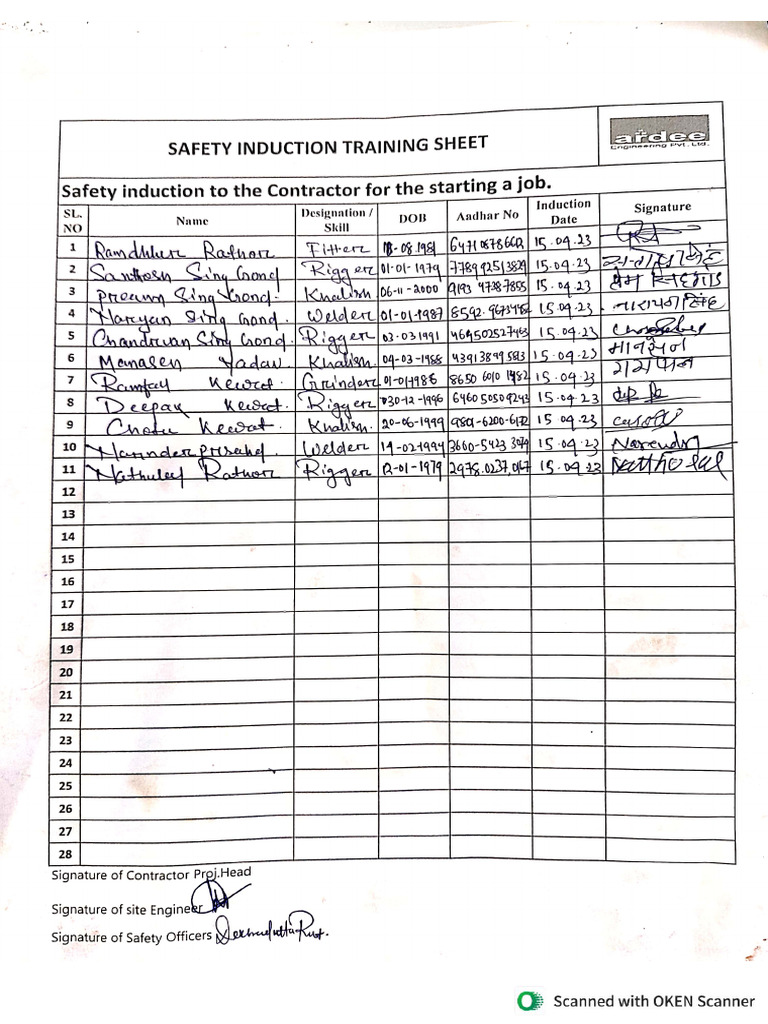 SAFETY INDUCTION TRAINING SHEET
ardee
Engineering Pvt. Ltd.
Safety induction to the Contractor for the starting a job.
SL. NO Name Designation / Skill DOB Aadhar No Induction Date Signature
1 Ramdhher Rathor Fitter 18-08.1981 15.04.23
2 Santhosh Sing Gond Rigger 01-01-1979 778992513829 15.04.23
3 Preeum Sing Gond. Khalish 06-11-2000 9193 4738 7855 15.04.23
4 Naryan Sing Gond. Welder 01-01-1987 15.04.23 नारायण सिंह
5 Chandrvan Sing Gond. Rigger 03.03.1991 464502527463 15.04.23
6 Manasen Yadav Khalish. 04-03-1988 439138995813 15.04.23 मानसेन
7 Ramfay Kewat Grinder 01-01-1986 8650 6010 1482 15.04.23
8 Deepak Kewat. Rigger 30-12-1996 6460 5050 9243 15.04.23
9 Chotu Kewat. Khalish. 20-06-1999 9801-6200-6172 15 04.23
10 Narinder prsahd. Welder 14-02-1994 3660-5423 15.04.23 Narendra
11 Nathulal Rathor Rigger 12-01-1979 2978.0237, 15.04.23 Natthu lal
12
13
14
15
16
17
18
19
20
21
22
23
24
25
26
27
28
Signature of Contractor Proj.Head
Signature of site Engineer
Signature of Safety Officers
Scanned with OKEN Scanner